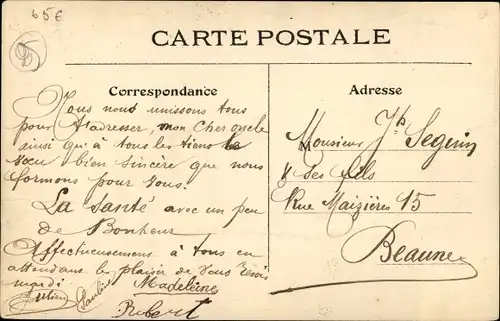 65€
CARTE POSTALE
Correspondance
Adresse
Nous nous unissons tous
pour t'adresser, mon Cher oncle
ainsi qu'à tous les tiens le
voeu bien sincère que nous
formons pour vous.
La Santé avec un peu
de Bonheur
Affectueusement à tous en
attendant le plaisir de vous revoir
mardi
Madeleine
Pauline
Robert
Monsieur Jh Seguin
& ses fils
Rue Maizières 15
Beaune